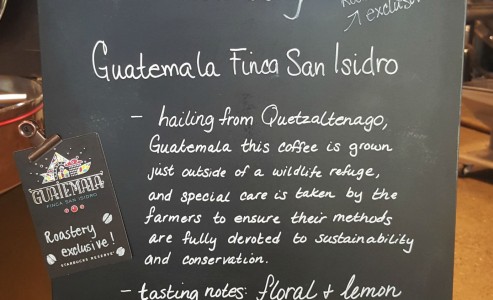 exclusiv
Guatemala Finca San Isidro
- hailing from Quetzaltenago,
Guatemala this coffee is grown
just outside of a wildlife refuge,
and special care is taken by the
farmers to ensure their methods
are fully devoted to sustainability
and conservation.
- tasting notes: floral + lemon
GUATEMALA
FINCA SAN ISIDRO
Roastery
exclusive!
STARBUCKS RESERVE